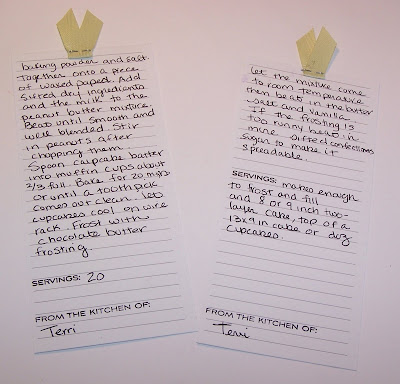 baking powder and salt
together onto a piece
of waxed paped. Add
sifted dry ingredients
and the milk to the
peanut butter mixture.
Beat until smooth and
well blended. Stir
in peanuts after
chopping them.
Spoon cupcake batter
into muffin cups about
2/3 full. Bake for 20 mins
or until a toothpick
comes out clean. Lets
cupcakes cool on wire
rack. Frost with
chocolate butter
frosting.
SERVINGS: 20
FROM THE KITCHEN OF:
Terri
let the mixture come
to room temperature
then beat in the butter
salt and vanilla.
If the frosting is
too runny beat in
more sifted confections
sugar to make it
spreadable.
SERVINGS: makes enough
to frost and fill
and 8 or 9 inch two-
layer cake, top of a
13x9 in cake or doz
cupcakes.
FROM THE KITCHEN OF:
Terri